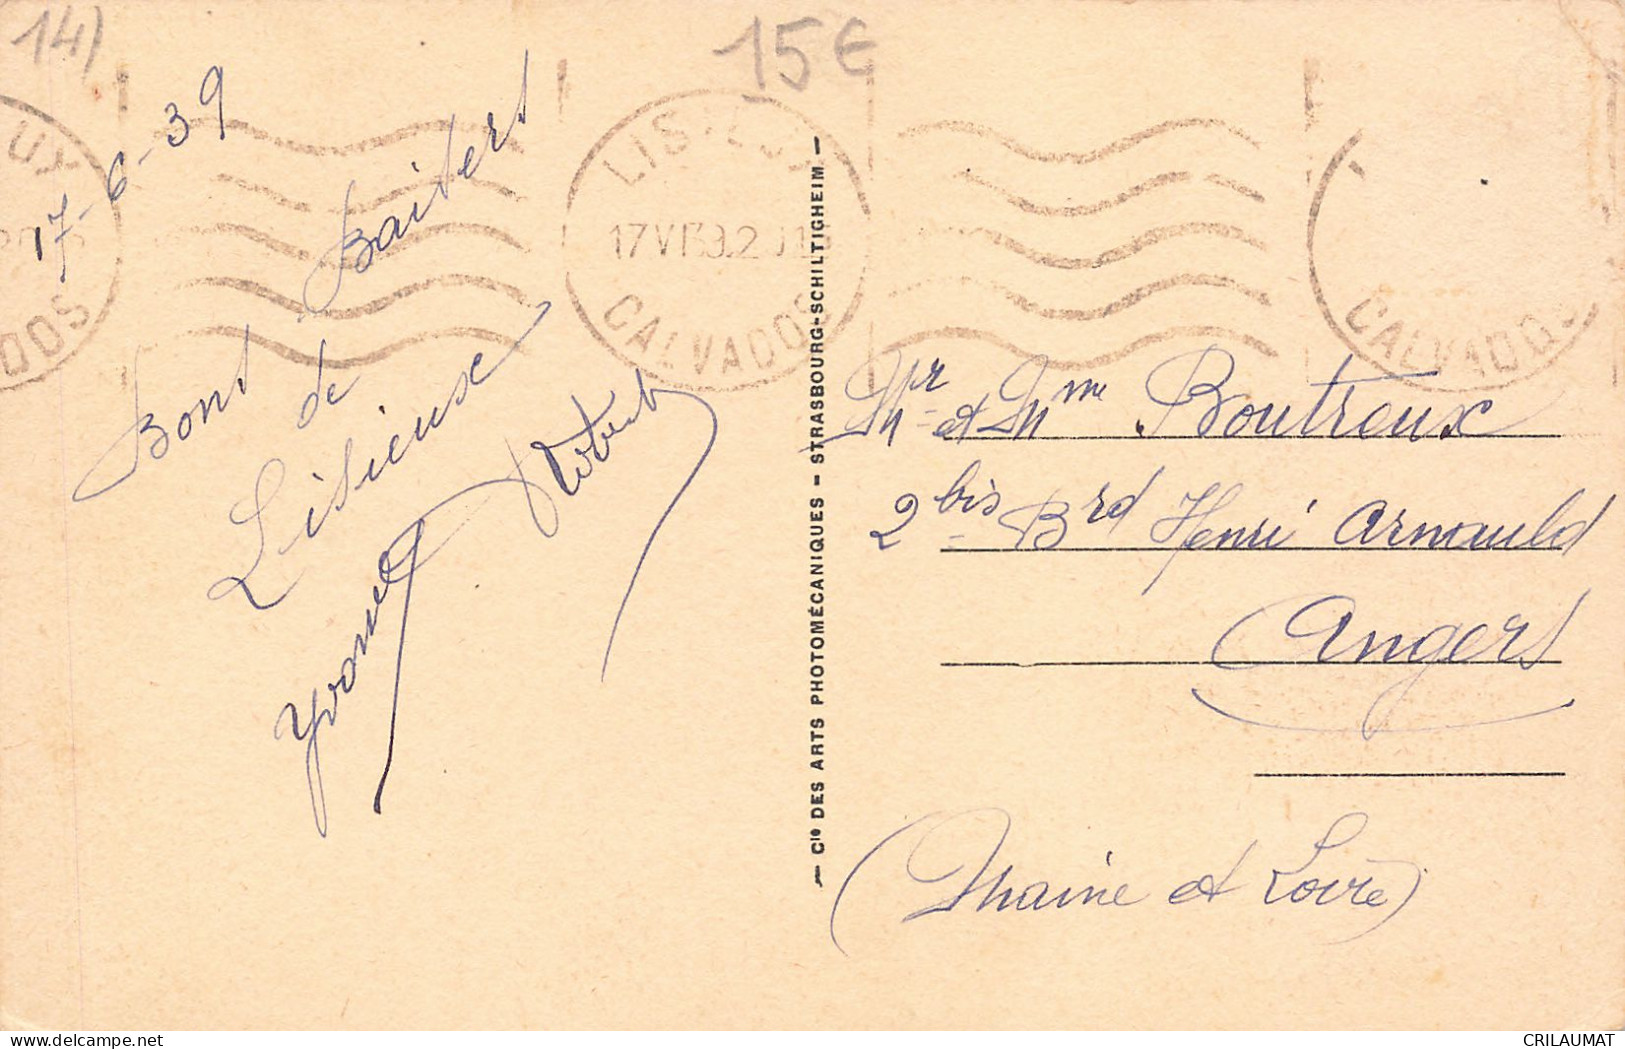 14)
15€
17-6-39
Bons Baisers
de
Lisieux
Yvonne
LISIEUX
17 VI 39
CALVADOS
UX
DOS
CALVADOS
— Cie DES ARTS PHOTOMÉCANIQUES — STRASBOURG-SCHILTIGHEIM —
Mr et Mme Boutreux
2 bis Brd Henri Arnauld
Angers
(Maine et Loire)
delcampe.net
CRILAUMAT